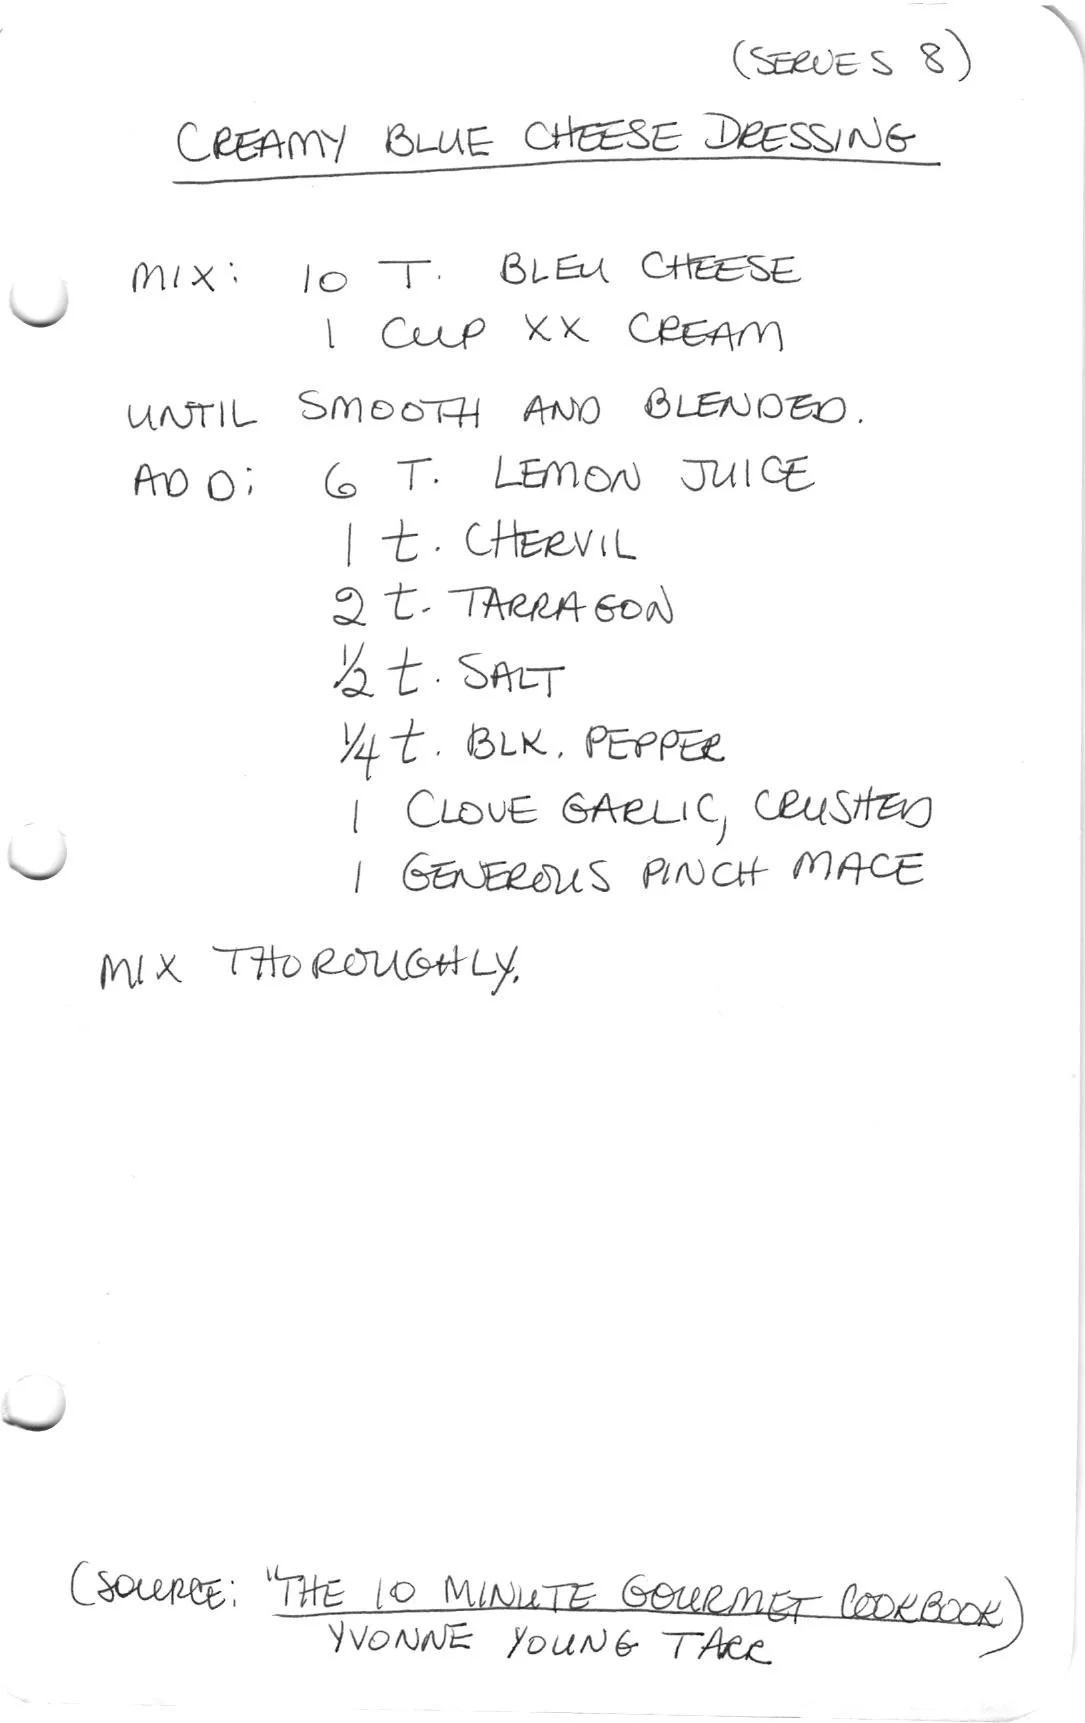 (SERVES 8)
CREAMY BLUE CHEESE DRESSING
MIX: 10 T. BLEU CHEESE
1 CUP XX CREAM
UNTIL SMOOTH AND BLENDED.
ADD: 6 T. LEMON JUICE
1 t. CHERVIL
2 t. TARRAGON
1/2 t. SALT
1/4 t. BLK. PEPPER
1 CLOVE GARLIC, CRUSHED
1 GENEROUS PINCH MACE
MIX THOROUGHLY.
(SOURCE: "THE 10 MINUTE GOURMET COOKBOOK)
YVONNE YOUNG TARR